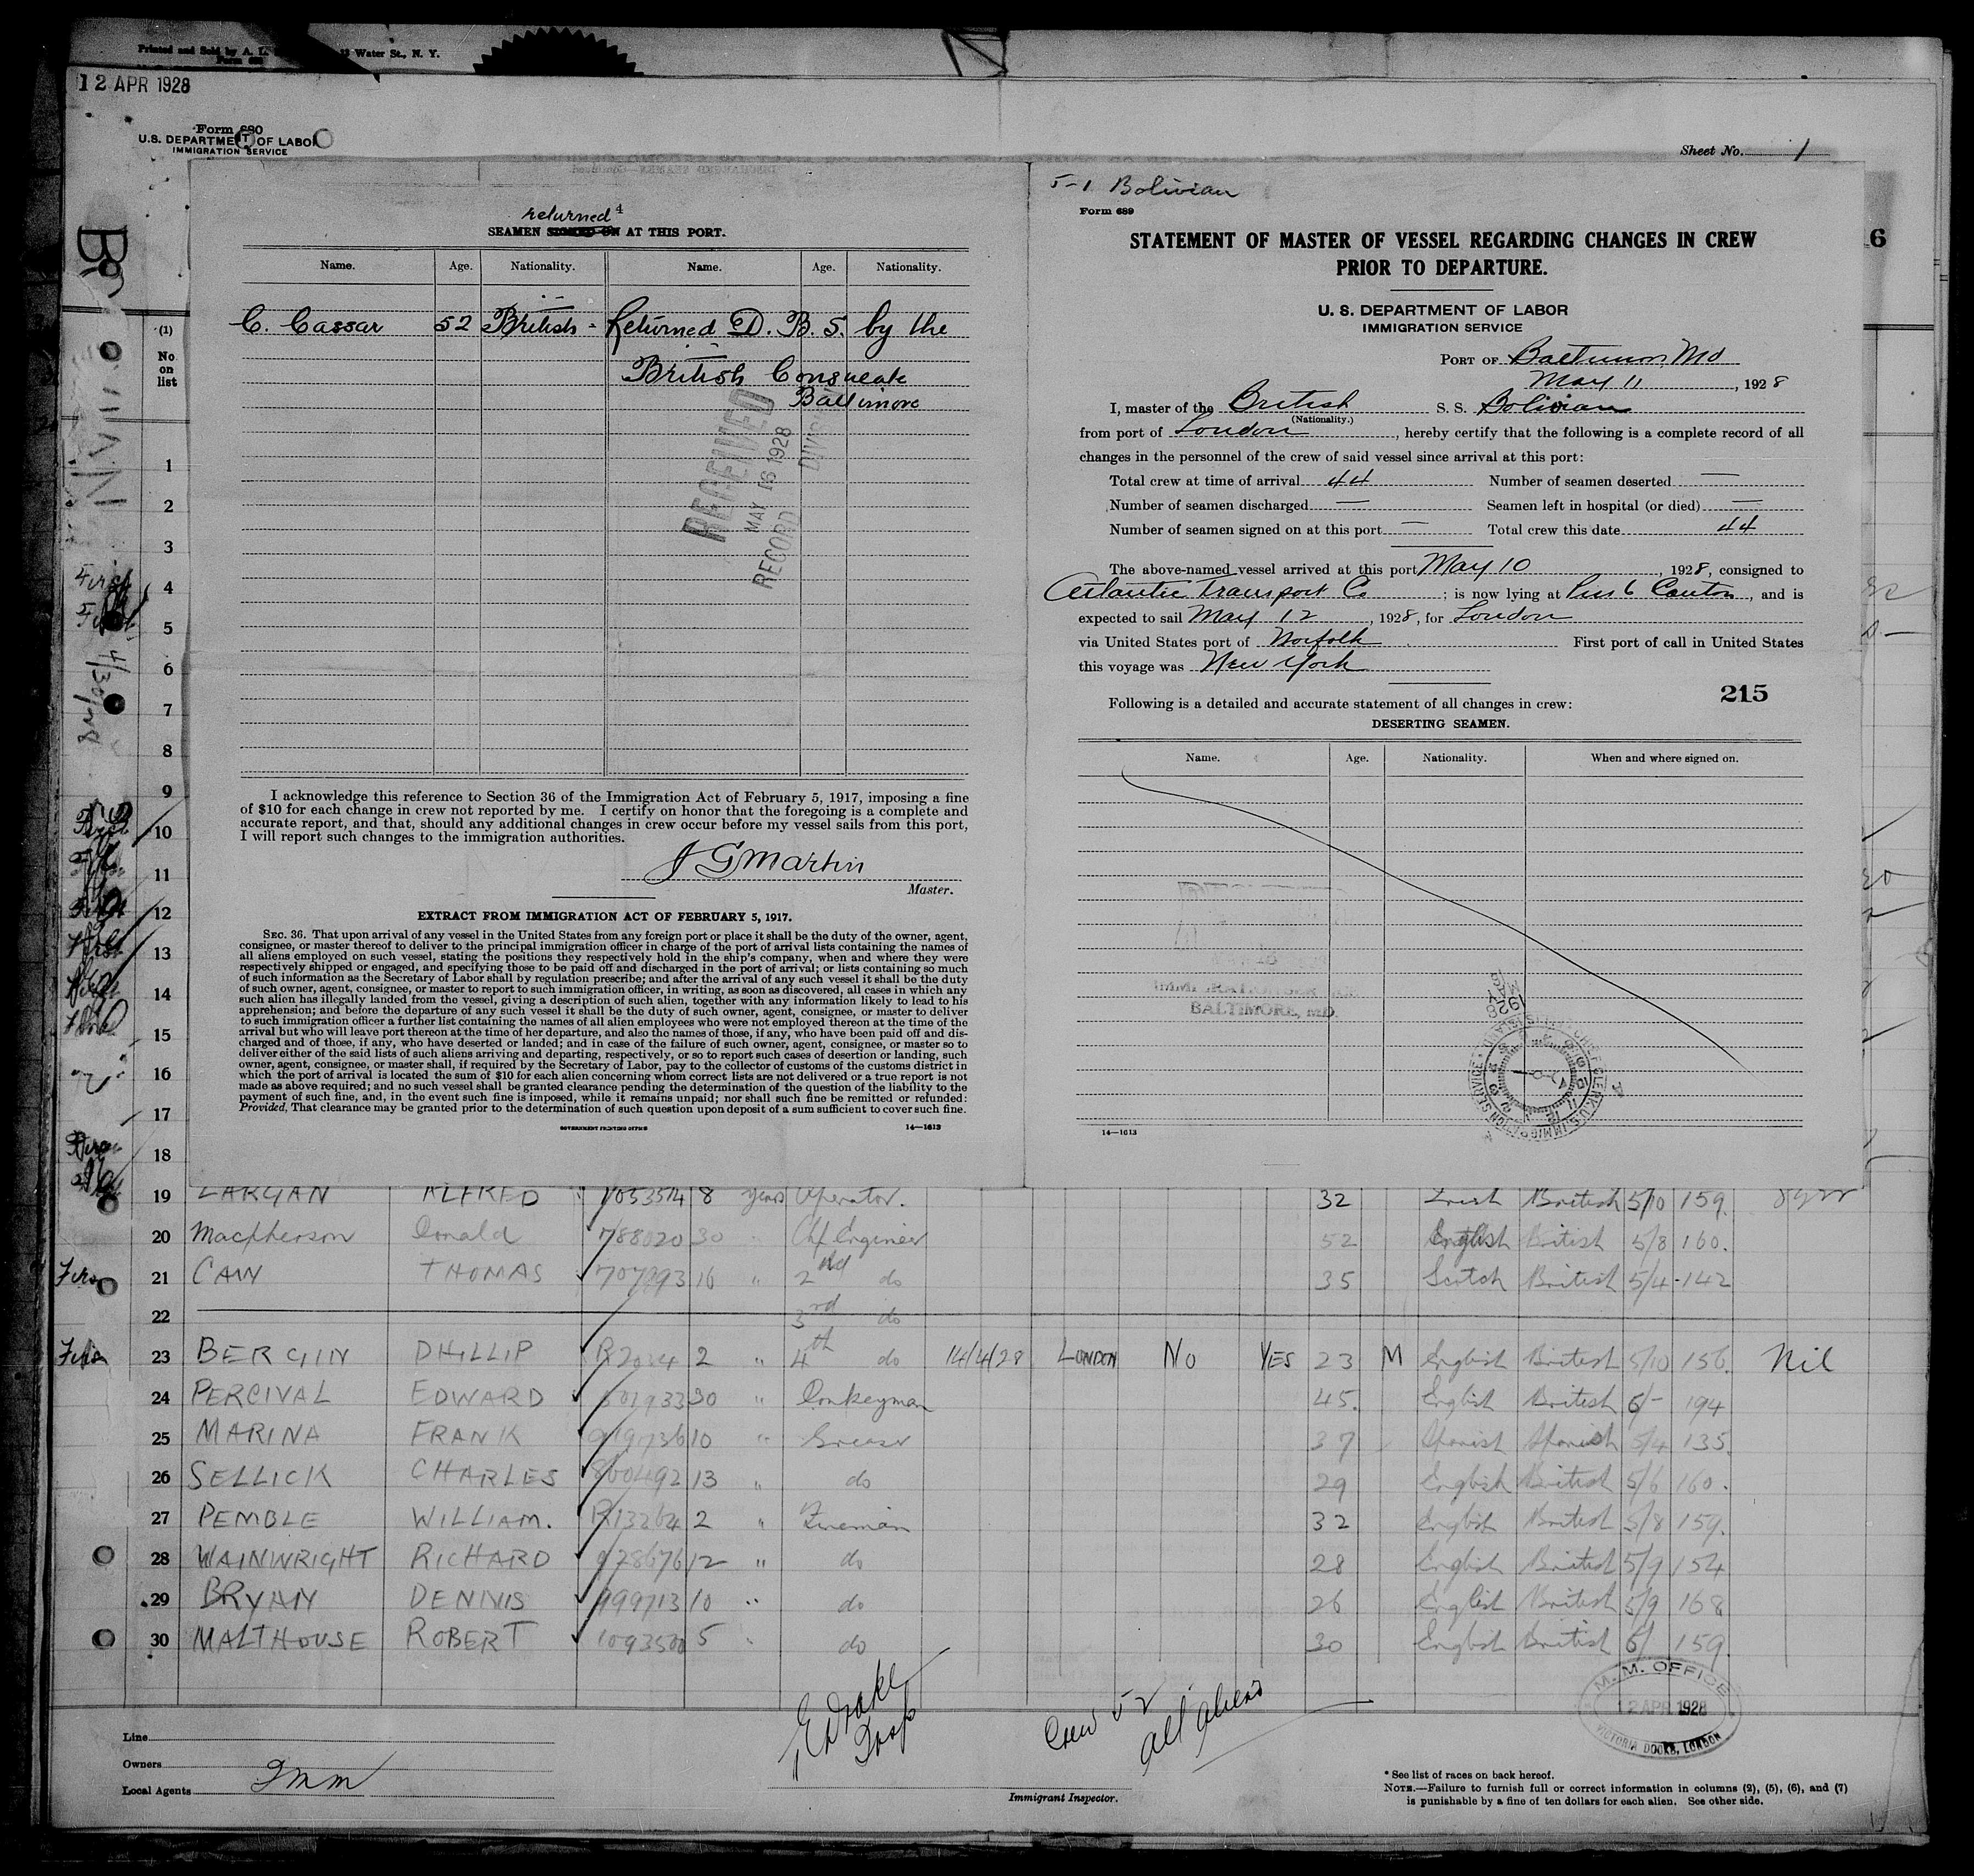 Printed and Sold by A. L.
Water St., N. Y.
12 APR 1928
Form 680
U.S. DEPARTMENT OF LABOR
IMMIGRATION SERVICE
Sheet No. 1
6
(1)
No.
on
list
returned 4
SEAMEN SIGNED ON AT THIS PORT.
Name. Age. Nationality. Name. Age. Nationality.
C. Cassar 52 British - Returned D. B. S. by the
British Consulate
Baltimore
RECEIVED
MAY 16 1928
RECORD DIVISION
I acknowledge this reference to Section 36 of the Immigration Act of February 5, 1917, imposing a fine
of $10 for each change in crew not reported by me. I certify on honor that the foregoing is a complete and
accurate report, and that, should any additional changes in crew occur before my vessel sails from this port,
I will report such changes to the immigration authorities.
J G Martin
Master.
EXTRACT FROM IMMIGRATION ACT OF FEBRUARY 5, 1917.
SEC. 36. That upon arrival of any vessel in the United States from any foreign port or place it shall be the duty of the owner, agent,
consignee, or master thereof to deliver to the principal immigration officer in charge of the port of arrival lists containing the names of
all aliens employed on such vessel, stating the positions they respectively hold in the ship's company, when and where they were
respectively shipped or engaged, and specifying those to be paid off and discharged in the port of arrival; or lists containing so much
of such information as the Secretary of Labor shall by regulation prescribe; and after the arrival of any such vessel it shall be the duty
of such owner, agent, consignee, or master to report to such immigration officer, in writing, as soon as discovered, all cases in which any
such alien has illegally landed from the vessel, giving a description of such alien, together with any information likely to lead to his
apprehension; and before the departure of any such vessel it shall be the duty of such owner, agent, consignee, or master to deliver
to such immigration officer a further list containing the names of all alien employees who were not employed thereon at the time of the
arrival but who will leave port thereon at the time of her departure, and also the names of those, if any, who have been paid off and dis-
charged and of those, if any, who have deserted or landed; and in case of the failure of such owner, agent, consignee, or master so to
deliver either of the said lists of such aliens arriving and departing, respectively, or so to report such cases of desertion or landing, such
owner, agent, consignee, or master shall, if required by the Secretary of Labor, pay to the collector of customs of the customs district in
which the port of arrival is located the sum of $10 for each alien concerning whom correct lists are not delivered or a true report is not
made as above required; and no such vessel shall be granted clearance pending the determination of the question of the liability to the
payment of such fine, and, in the event such fine is imposed, while it remains unpaid; nor shall such fine be remitted or refunded:
Provided, That clearance may be granted prior to the determination of such question upon deposit of a sum sufficient to cover such fine.
GOVERNMENT PRINTING OFFICE 14—1613
5-1 Bolivian
Form 689
STATEMENT OF MASTER OF VESSEL REGARDING CHANGES IN CREW
PRIOR TO DEPARTURE.
U. S. DEPARTMENT OF LABOR
IMMIGRATION SERVICE
PORT OF Baltimore, Md
May 11, 1928
I, master of the British S. S. Bolivian
(Nationality.)
from port of London, hereby certify that the following is a complete record of all
changes in the personnel of the crew of said vessel since arrival at this port:
Total crew at time of arrival 44 Number of seamen deserted —
Number of seamen discharged — Seamen left in hospital (or died) —
Number of seamen signed on at this port — Total crew this date 44
The above-named vessel arrived at this port May 10, 1928, consigned to
Atlantic Transport Co; is now lying at Pier 6 Canton, and is
expected to sail May 12, 1928, for London
via United States port of Norfolk First port of call in United States
this voyage was New York
215
Following is a detailed and accurate statement of all changes in crew:
DESERTING SEAMEN.
Name. Age. Nationality. When and where signed on.
BALTIMORE, MD.
14—1613
1
2
3
4
5
6
7
8
9
10
11
12
13
14
15
16
17
18
19 ALFRED 8 years Operator. 32 Irish British 5/10 159.
20 Macpherson Donald 788020 30 " Chf Engineer 52 English British 5/8 160.
21 CAW THOMAS 16 " 2nd do 35 Scotch British 5/4 142
22 3rd do
23 BERGIN PHILLIP 2 " 4th do 14/4/28 LONDON No YES 23 M English British 5/10 156. Nil
24 PERCIVAL EDWARD 30 " Donkeyman 45. English British 6/- 194
25 MARINA FRANK 10 " Greaser 37 Spanish Spanish 5/4 135.
26 SELLICK CHARLES 860492 13 " do 29 English British 5/6 160.
27 PEMBLE WILLIAM. R13264 2 " Fireman 32 English British 5/8 159.
28 WAINWRIGHT RICHARD 978676 12 " do 28 English British 5/9 154
29 BRYAN DENNIS 999713 10 " do 26 English British 5/9 168
30 MALTHOUSE ROBERT 5 " do 30 English British 6/ 159.
E Drake
Insp
Crew 52
all aliens
M. M. OFFICE
12 APR 1928
VICTORIA DOCKS, LONDON
Line
Owners
Local Agents Imm
Immigrant Inspector.
* See list of races on back hereof.
NOTE.—Failure to furnish full or correct information in columns (2), (5), (6), and (7)
is punishable by a fine of ten dollars for each alien. See other side.